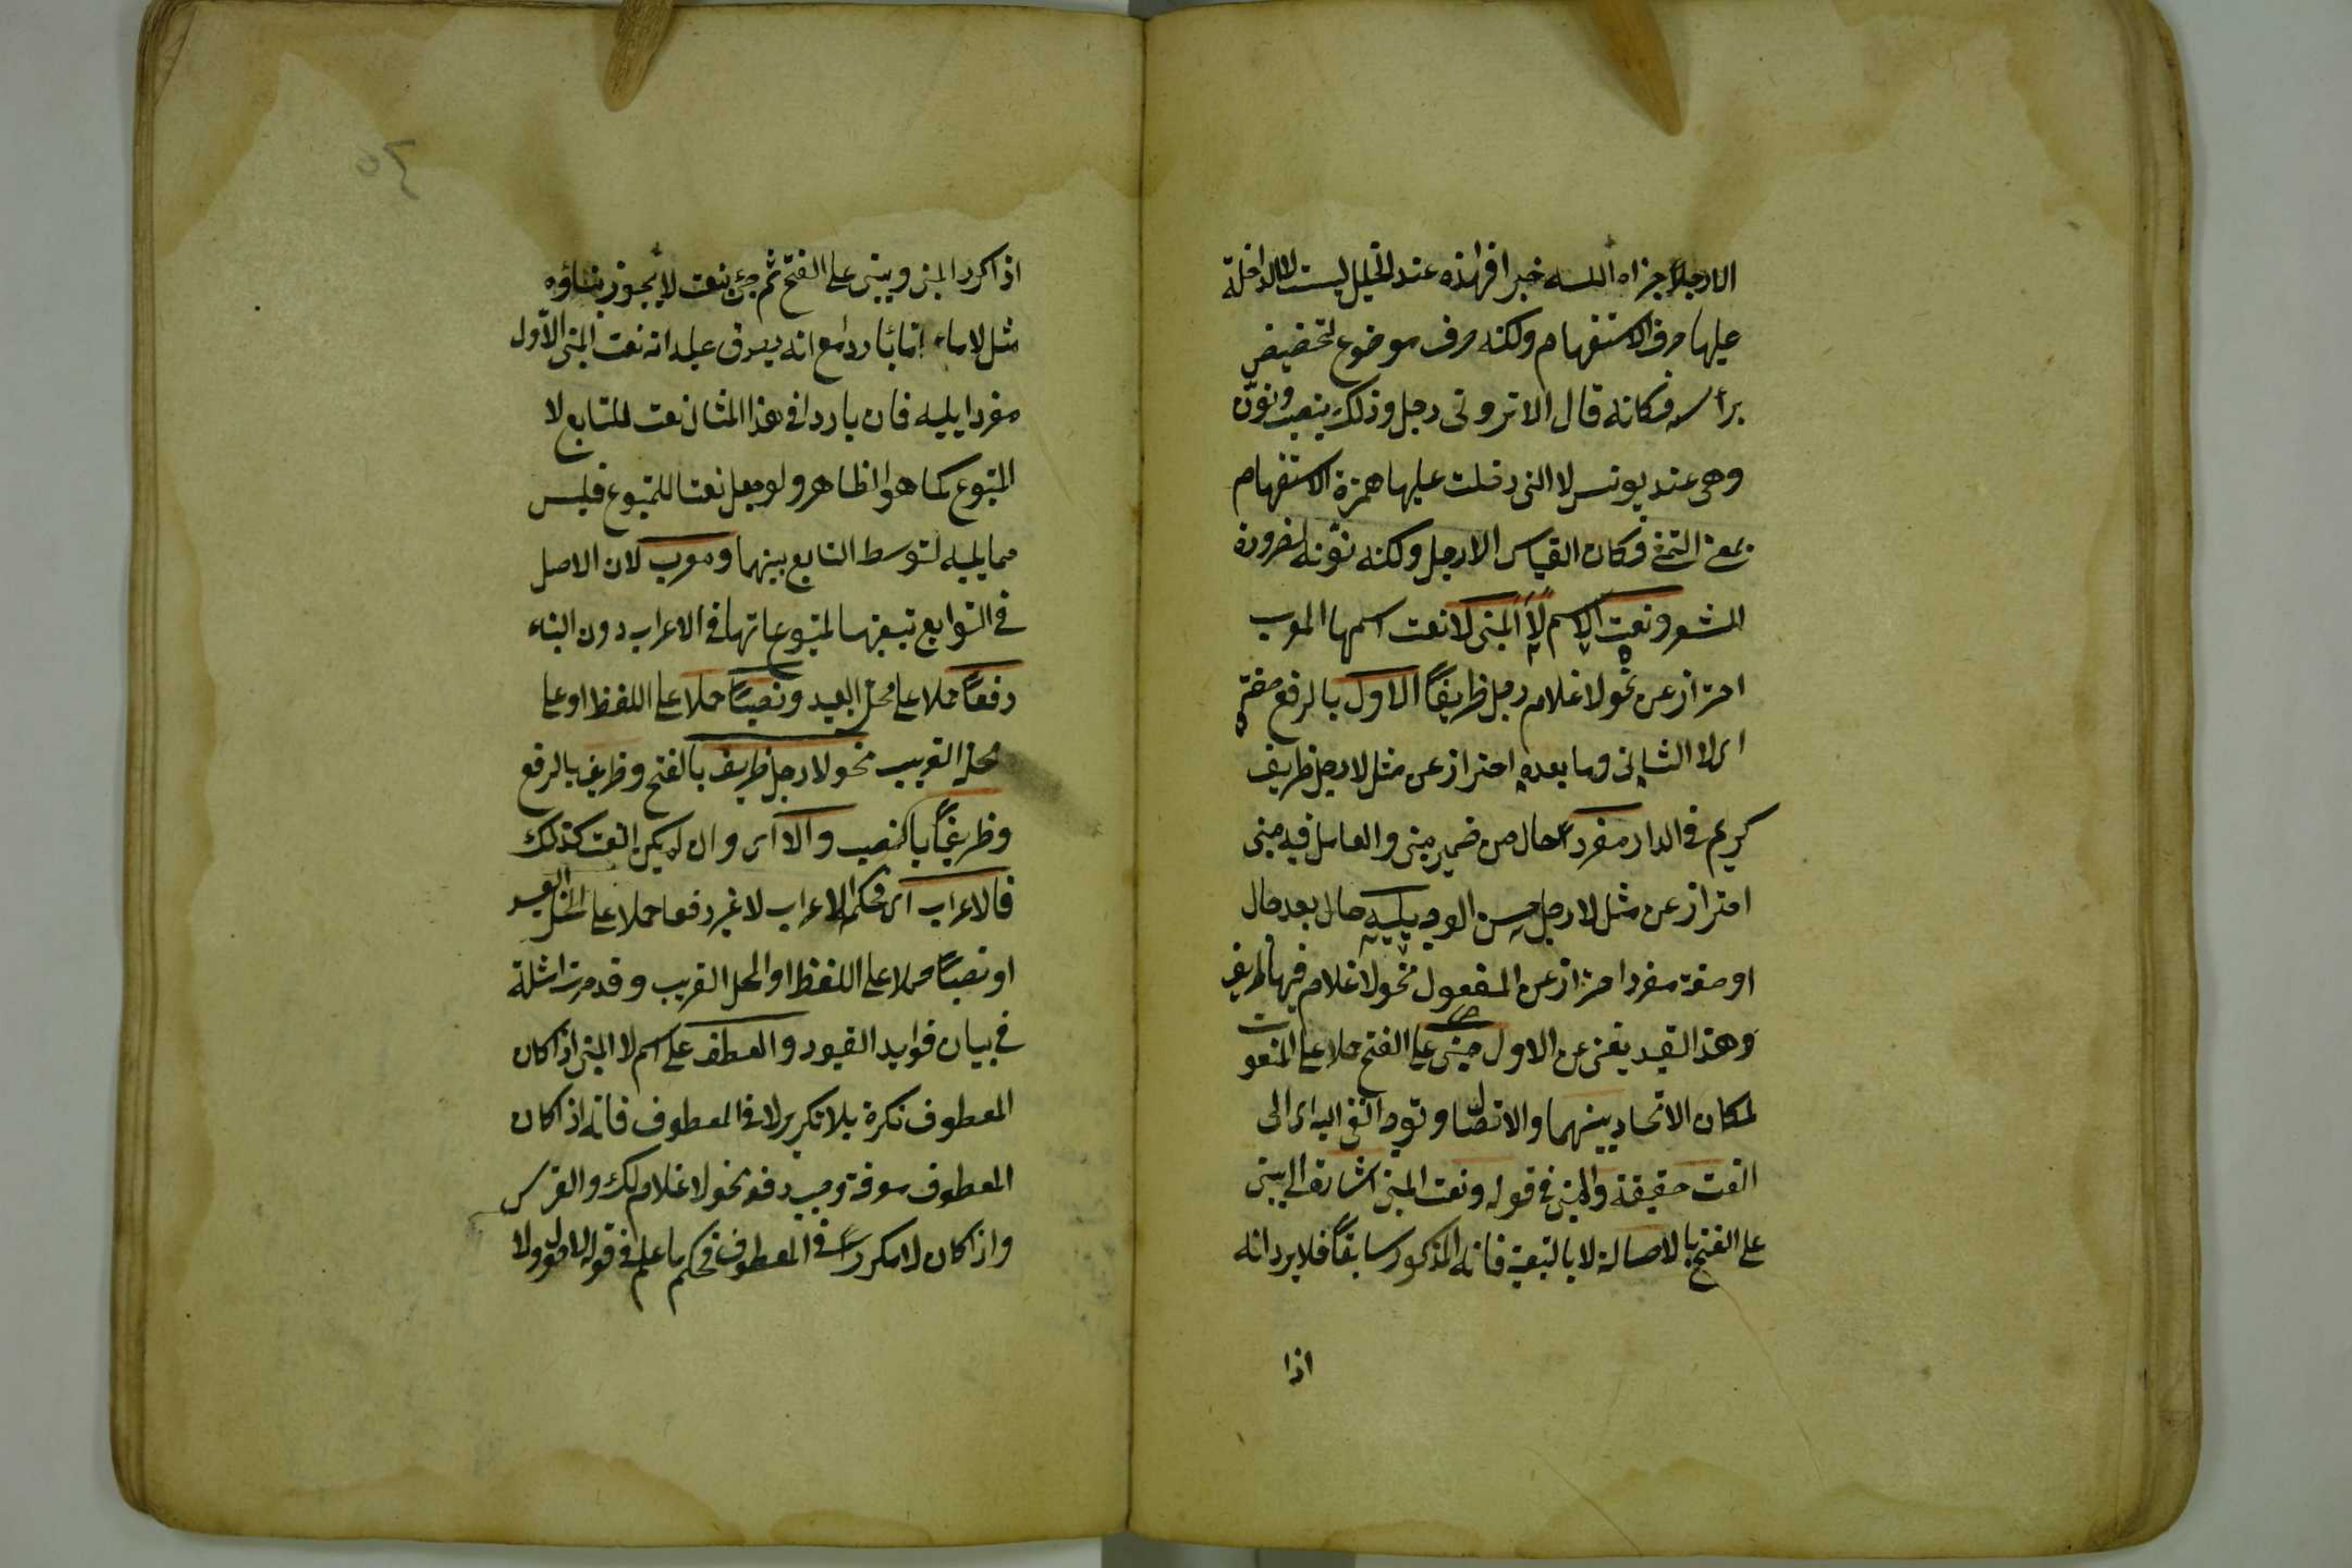 الا رجلا جزاه الله خيرا فهذه عند الخليل ليست لا الداخلة
عليها حرف الاستفهام ولكنه حرف موضوع لتحضيض
برأسه فكانه قال الا تروني رجلا وذلك ينصب ونون
وهي عند يونس لا التي دخلت عليها همزة الاستفهام
بمعنى التمني فكان القياس الا رجل ولكنه نونه لضرورة
الشعر ونعت الاسم لا المبني لا نعت اسمها المعرب
احتراز عن نحو لا غلام رجل ظريفاً الاول بالرفع صفته
اى لا الثاني وما بعده احتراز عن مثل لا رجل ظريف
كريم في الدار مفرداً حال من ضمير مبنى والعامل فيه مبنى
احتراز عن مثل لا رجل حسن الوجه يليه حال بعد حال
او صفة مفردا احتراز عن المفصول نحو لا غلام فيها ظريف
وهذا القيد يغنى عن الاول مبنى على الفتح حملا على المنعوت
لمكان الاتحاد بينهما والاتصال وتوجه النفى اليه اى الى
النعت حقيقة والمبنى في قوله ونعت المبنى اشارة الى ما يبنى
على الفتح بالاصالة لا بالتبعية فانه المذكور سابقاً فلا يرد انه
اذا
٤٥
اذا كرر المبنى ويبنى على الفتح ثم جئ بنعت لا يجوز بناؤه
مثل لا ماء ماء باردا مع انه يصدق عليه انه نعت المبنى الاول
مفردا يليه فان باردا في هذا المثال نعت للتابع لا
المتبوع كما هو الظاهر ولو جعل نعتا للمتبوع فليس
مما يليه لتوسط التابع بينهما ومعرب لان الاصل
في التوابع تبعيتها لمتبوعاتها في الاعراب دون البناء
رفعاً حملا على محله البعيد ونصباً حملا على اللفظ او على
محله القريب نحو لا رجل ظريف بالفتح وظريف بالرفع
وظريفاً بالنصب والا اى وان لم يكن النعت كذلك
فالاعراب اى فحكمه الاعراب لا غير رفعا حملا على المحل البعيد
او نصباً حملا على اللفظ او المحل القريب وقد مرت امثلة
في بيان فوايد القيود والعطف على اسم لا المبنى اذا كان
المعطوف نكرة بلا تكرير لا في المعطوف فانه اذا كان
المعطوف معرفة وجب رفعه نحو لا غلام لك والفرس
واذا كان لا مكررا في المعطوف فحكمه ما علم في قوله لا حول ولا